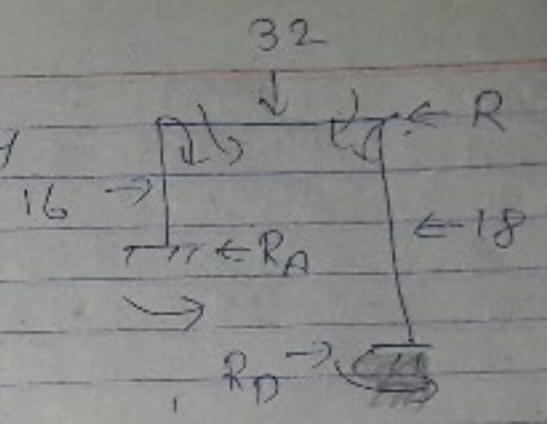 32
← R
16 →
← 18
← R_A
R_D →